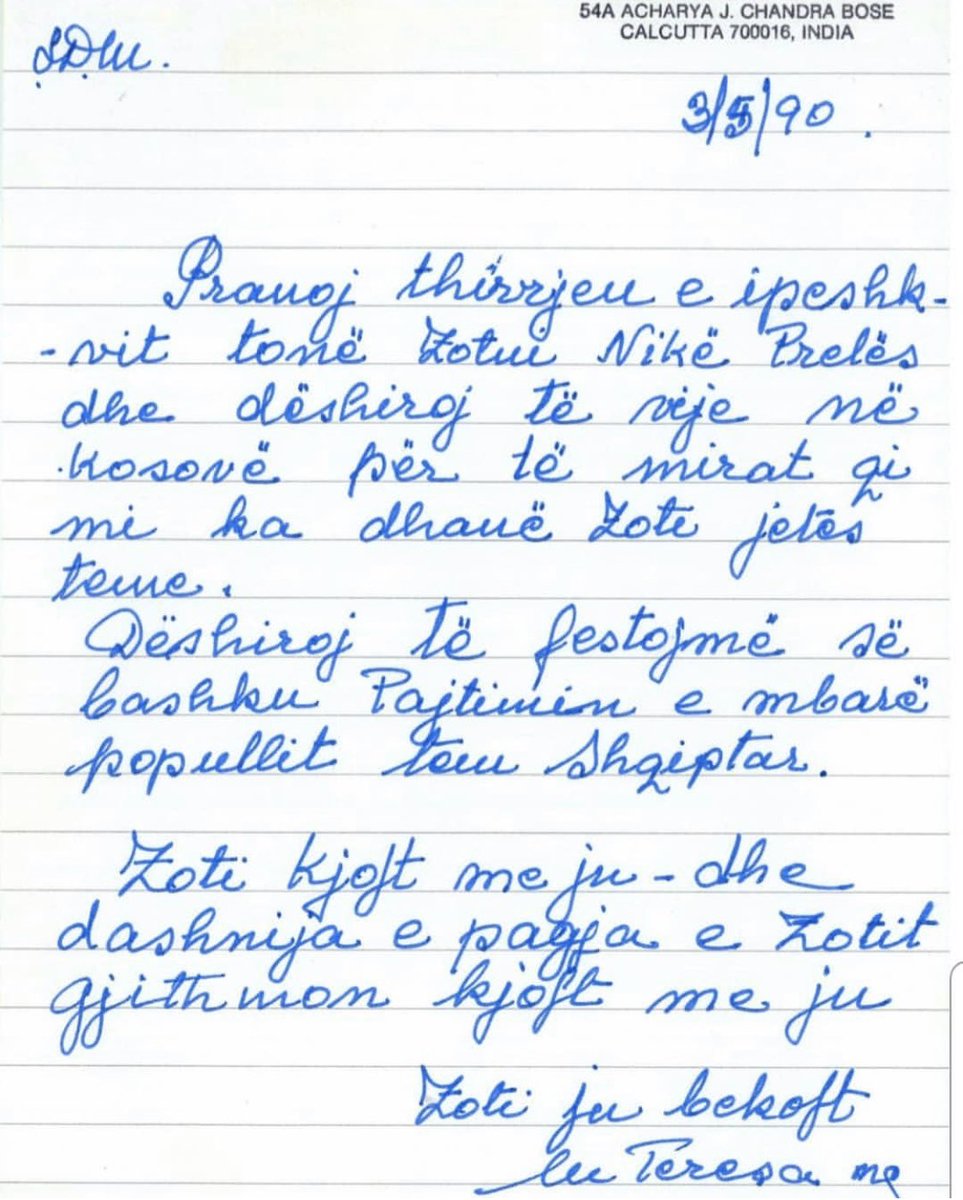 54A ACHARYA J. CHANDRA BOSE
CALCUTTA 700016, INDIA
LDM.
3/5/90.
Pranoj thirrjen e ipeshk-
-vit tonë Zotni Nikë Prelës
dhe dëshiroj të vije në
Kosovë për të mirat qi
mi ka dhanë Zoti jetës
teme.
Dëshiroj të festojmë së
bashku Pajtimin e mbarë
popullit tem Shqiptar.
Zoti kjoft me ju - dhe
dashnija e pagja e Zotit
gjithmon kjoft me ju
Zoti ju bekoft
Teresa mc